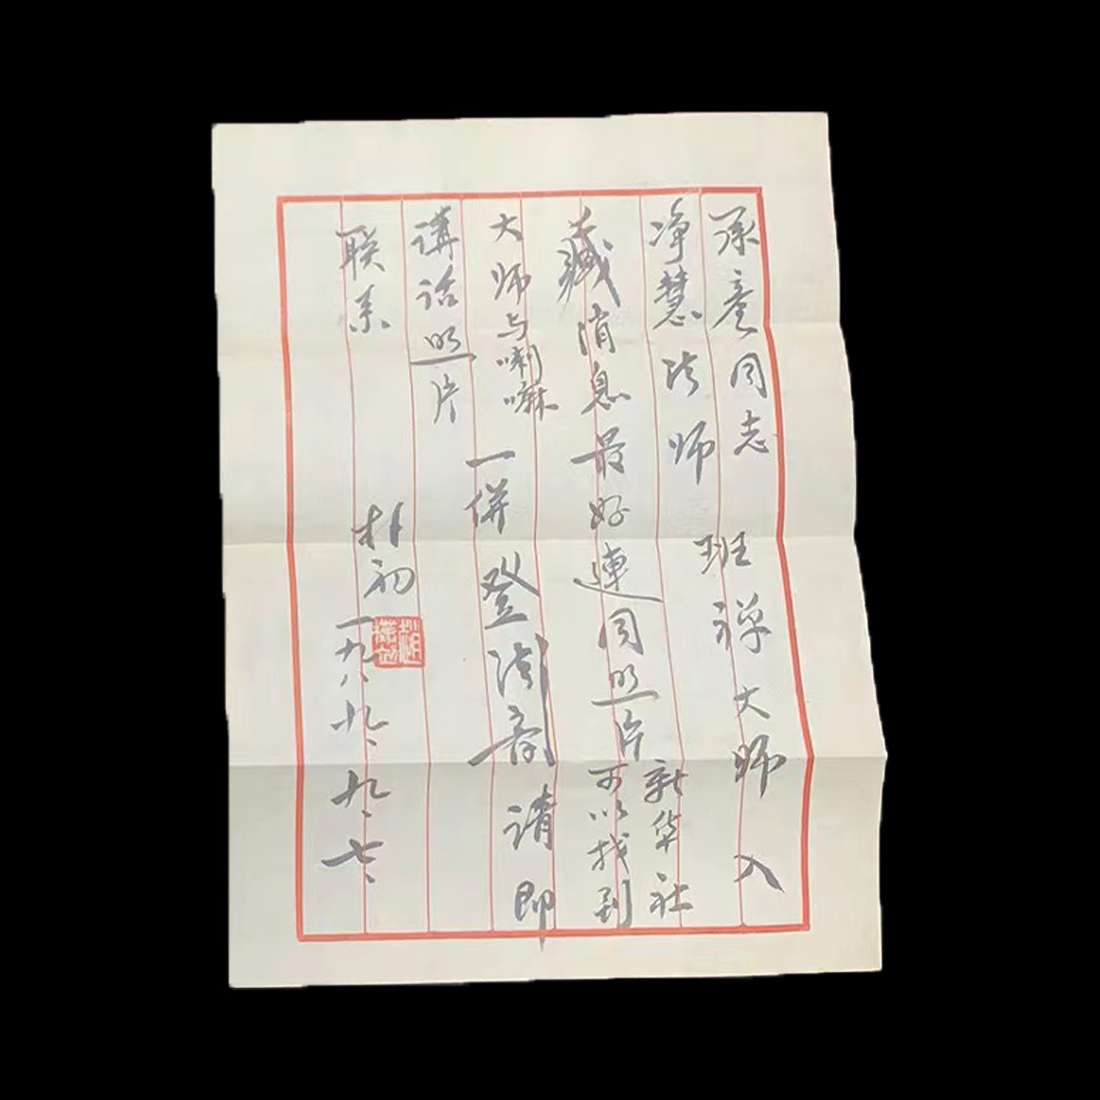 承同志
净慧法师 班禅大师入
藏消息最好連同照片
新华社
可以找到
大师与喇嘛
講话照片
一併登法音 请即
联系
朴初
一九八九、九、七、
趙樸初